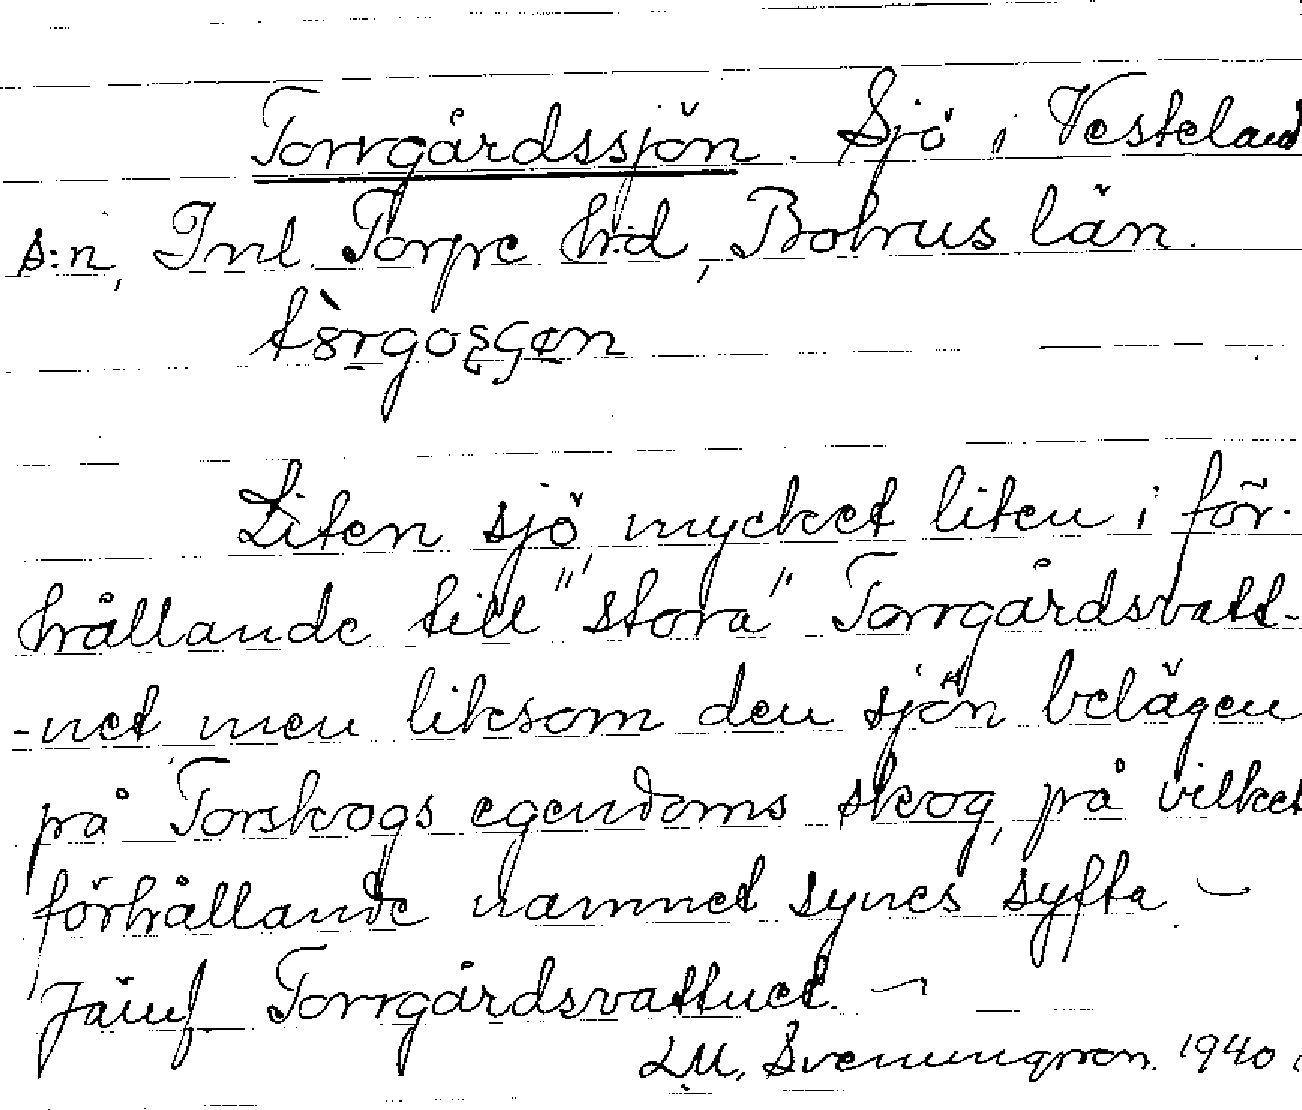 Torrgårdssjön. Sjö i Vesteland
s:n, Inl. Torpe h:d, Bohus län.
Liten sjö, mycket liten i för-
hållande till "stora" Torrgårdsvatt-
-net men liksom den sjön belägen
på Torskogs egendoms skog, på vilket
förhållande namnet synes syfta –
Jämf. Torrgårdsvattnet. –
L.M. Svenungsson. 1940.